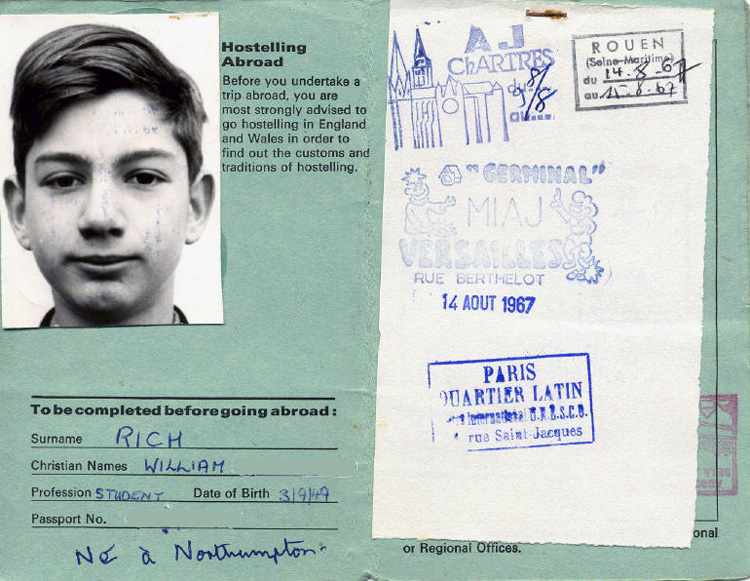 Hostelling
Abroad
Before you undertake a
trip abroad, you are
most strongly advised to
go hostelling in England
and Wales in order to
find out the customs and
traditions of hostelling.
To be completed before going abroad:
Surname RICH
Christian Names WILLIAM
Profession STUDENT Date of Birth 3/9/49
Passport No.
Né à Northumpton
AJ
CHARTRES
du 8/8
au
ROUEN
(Seine-Maritime)
du 14-8-67
au 15-8-67
"GERMINAL"
MIAJ
VERSAILLES
RUE BERTHELOT
14 AOUT 1967
PARIS
QUARTIER LATIN
International
rue Saint-Jacques
onal
or Regional Offices.